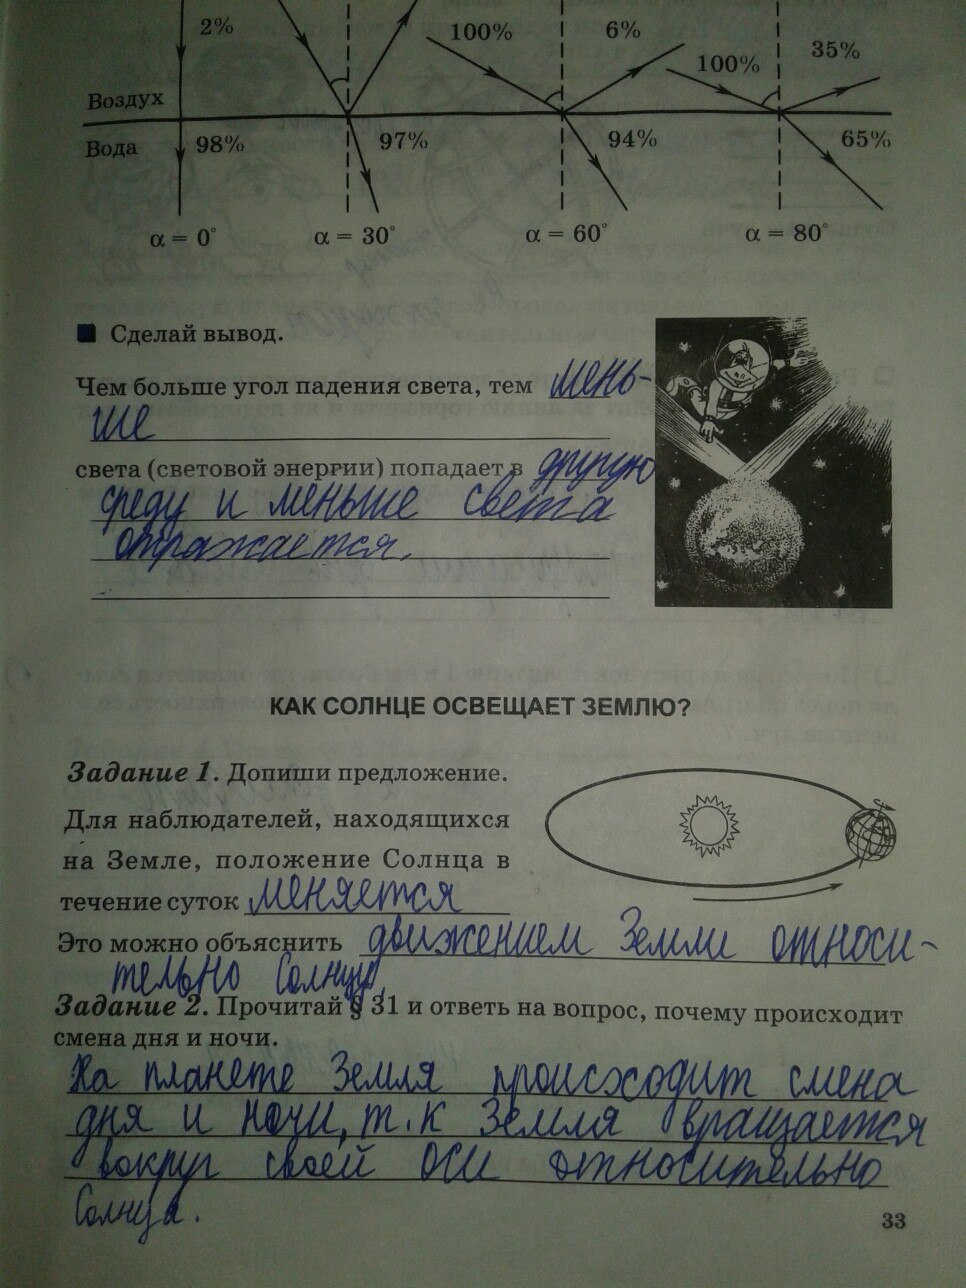 2% 100% 6% 100% 35%
Воздух
Вода 98% 97% 94% 65%
α = 0° α = 30° α = 60° α = 80°
Сделай вывод.
Чем больше угол падения света, тем мень-
ше
света (световой энергии) попадает в другую
среду и меньше света
отражается.
КАК СОЛНЦЕ ОСВЕЩАЕТ ЗЕМЛЮ?
Задание 1. Допиши предложение.
Для наблюдателей, находящихся
на Земле, положение Солнца в
течение суток меняется
Это можно объяснить движением Земли относи-
тельно Солнца.
Задание 2. Прочитай § 31 и ответь на вопрос, почему происходит
смена дня и ночи.
На планете Земля происходит смена
дня и ночи, т.к Земля вращается
вокруг своей оси относительно
Солнца.
33